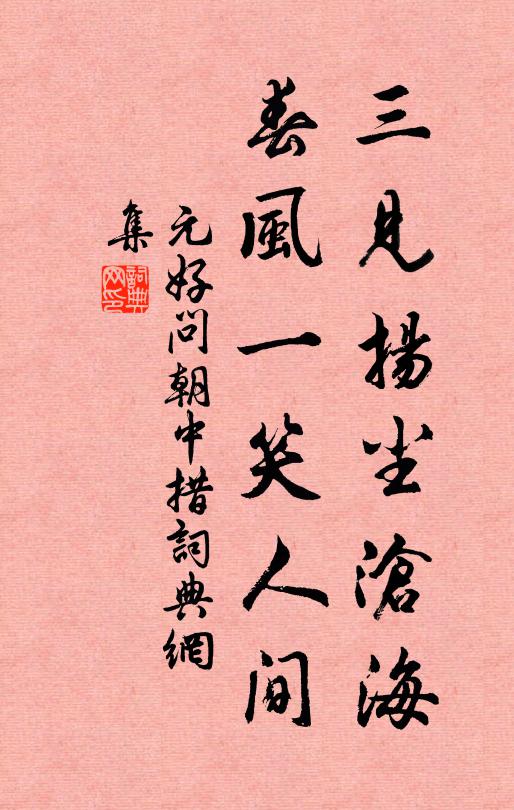 三見揚尘滄海
春風一笑人间
元好问朝中措詞典網
集
詞典
网印